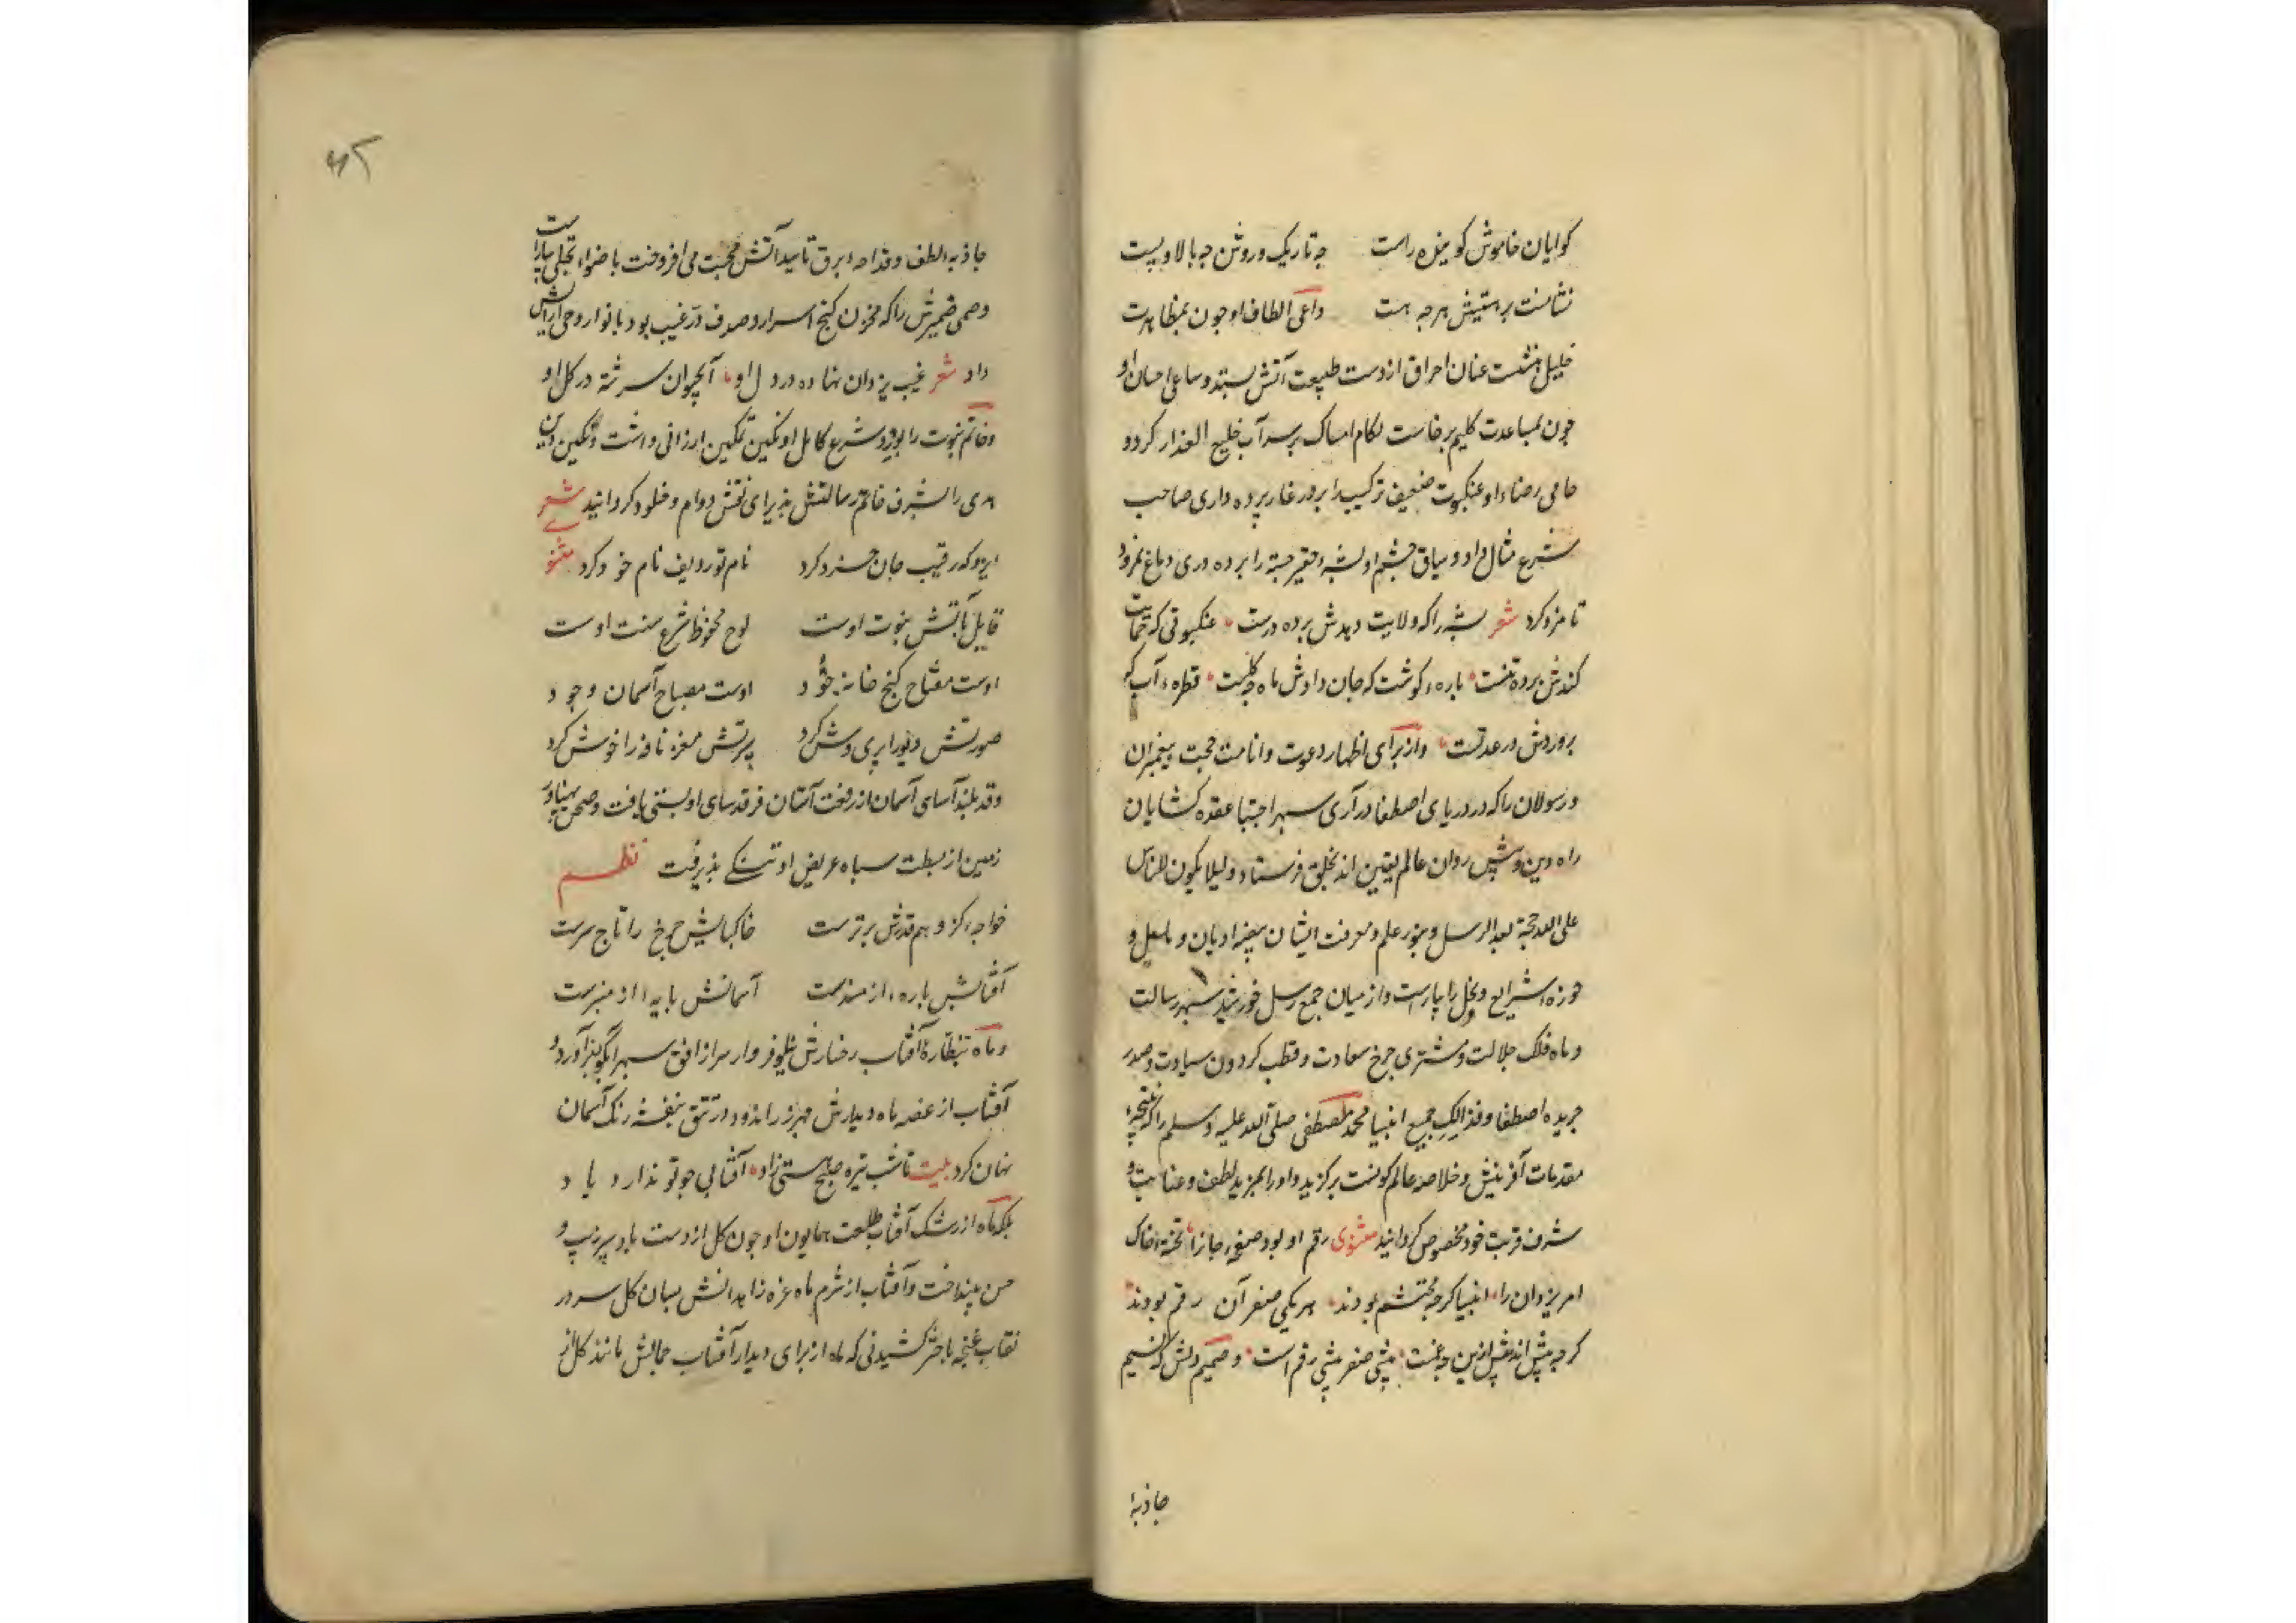 کوایان خاموش کوینده راست جه تاریک و روشن جه بالا و پست
نشانست بر هستیش هر جه هست داعی الطاف او جون بمظاهرت
خلیل نشست عنان احراق از دست طبیعت آتش بستد و ساعی احسان او
جون بمساعدت کلیم برخاست لکام امساک بر سر آب خلیع العذار کرد و
حامی رضاء او عنکبوت ضعیف ترکیب را بر در غار برده داری صاحب
شرع مثال داد و سیاق خشم او بشه حقیر جثه را برده دری دماغ نمرود
نامزد کرد شعر بشه را که ولایت دهدش برده درست عنکبوتی که حمایت
کندش برده تنست باره کوشت که جان دادش ماه جکلیست قطره آب که
بروردش در عدنست و از برای اظهار دعوت و اقامت حجت بیغمبران
و رسولان را که در دریای اصطفا دراری سبهر اجتبا عقده کشایان
راه دین و بیش روان عالم یقین اند بخلق فرستاد و لیلا یکون للناس
علی الله حجة بعد الرسل و بنور علم و معرفت ایشان بیضه ادیان و ملل و
حوزه شرایع و نحل را بیاراست و از میان جمع رسل خورشید سبهر رسالت
و ماه فلک جلالت و مشتری جرخ سعادت و قطب کردون سیادت و صدر
جریده اصطفا و فذالک جمیع انبیا محمد مصطفی صلی الله علیه و سلم را که نتیجه
مقدمات آفرینش و خلاصه عالم کونست برکزید و او را بمزید لطف و عنایت و
شرف قربت خود مخصوص کردانید مثنوی رقم او بود صفحه جان را تخته خاک
امر یزدان را انبیا کرجه محتشم بودند هر یکی صفر آن رقم بودند
کرجه بیش اند بیش ازین جه غمست بیشی صفر بیشی رقم است و صمیم دلش که نسیم
جاذبهٔ
جاذبه لطف و قداحه برق تأیید آتش محبت می افروخت با ضواء تجلی بیاراست
و حمی ضمیرش را که مخزن کنج اسرار و صدف در غیب بود بانوار وحی آرایش
داد شعر غیب یزدان نهاده در دل او آب حیوان سرشته در کل او
و خاتم نبوت را بوجود شرع کامل او نکین تمکین ارزانی داشت و نکین دین
هدی را بشرف خاتم رسالتش بذیرای نقش دوام و خلود کردانید شعر
ایزد که رقیب جان خرد کرد نام تو ردیف نام خود کرد مثنوی
قابل تابش نبوت اوست لوح محفوظ شرع سنت اوست
اوست مفتاح کنج خانه جود اوست مصباح آسمان وجود
صورتش دیو را بری وش کرد سیرتش مغز نافه را خوش کرد
و قد بلند آسای آسمان از رفعت آستان فرقدسای او بستی یافت و صحن بهناور
زمین از بسطت سباه عریض او تنکی بذیرفت نظم
خواجه کز وهم قدرش برترست خاکبایش جرخ را تاج سرست
آفتابش باره از مسندست آسمانش بایه از منبرست
و ماه بنظاره آفتاب رخسارش نیلوفر وار سر از افق سبهر آبکون برآورد و
آفتاب از غصه ماه دیدارش جهره زراندود در تتق بنفشه رنک آسمان
نهان کرد بیت تا شب تیره صبح هستی زاد آفتابی جو تو ندارد یاد
بلکه ماه از رشک آفتاب طلعت همایون او جون کل از دست باد سبر زیب و
حسن بینداخت و آفتاب از شرم ماه غره زاهدانش بسان کل سر در
نقاب غنچه باختر کشید نی که ماه از برای دیدار آفتاب جمالش مانند کل از